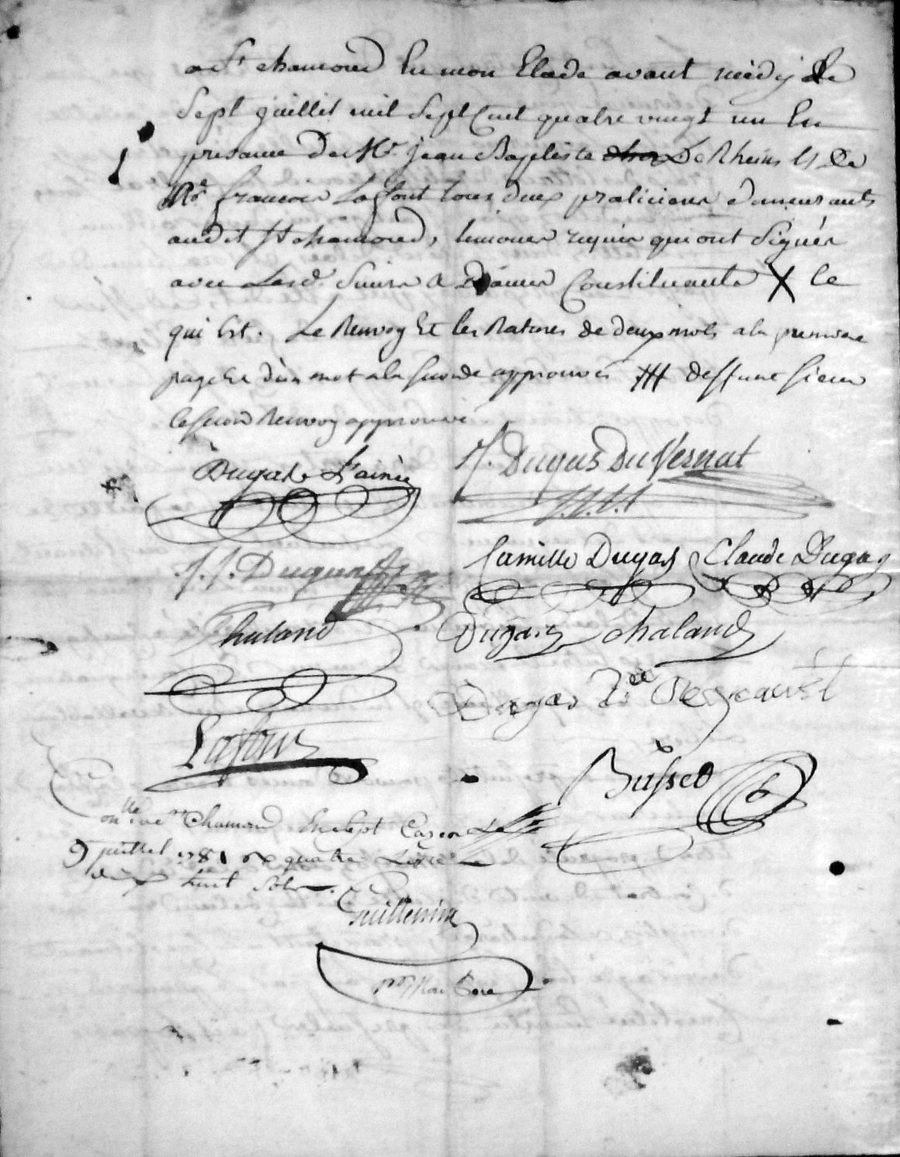 a St chamond En mon Etude avant midy Le
Sept Juillet mil Sept Cent quatre vingt un En
présence De Mr Jean Baptiste De Rheins Et De
Me francois Lafont tous deux praticiens demeurants
audit St chamond, temoins requis qui ont Signés
avec Lesd. Sieurs & Dames Constituants X Ce
qui Est. Le Renvoy Et les Ratures de deux mots a la premiere
page Et d'un mot a la seconde approuvés ### deffunt Sieur
le second Renvoy approuvé
Dugas L'ainé
Dugas Du Vernat
J. J. Dugas
Camille Dugas Claude Dugas
Chaland
Dugas chaland
Dugas née
Lafont
Busset
onlle a St Chamond En Sept Cases Le
9 juillet 1781 quatre Livres
dix huit Sols
Guillemin